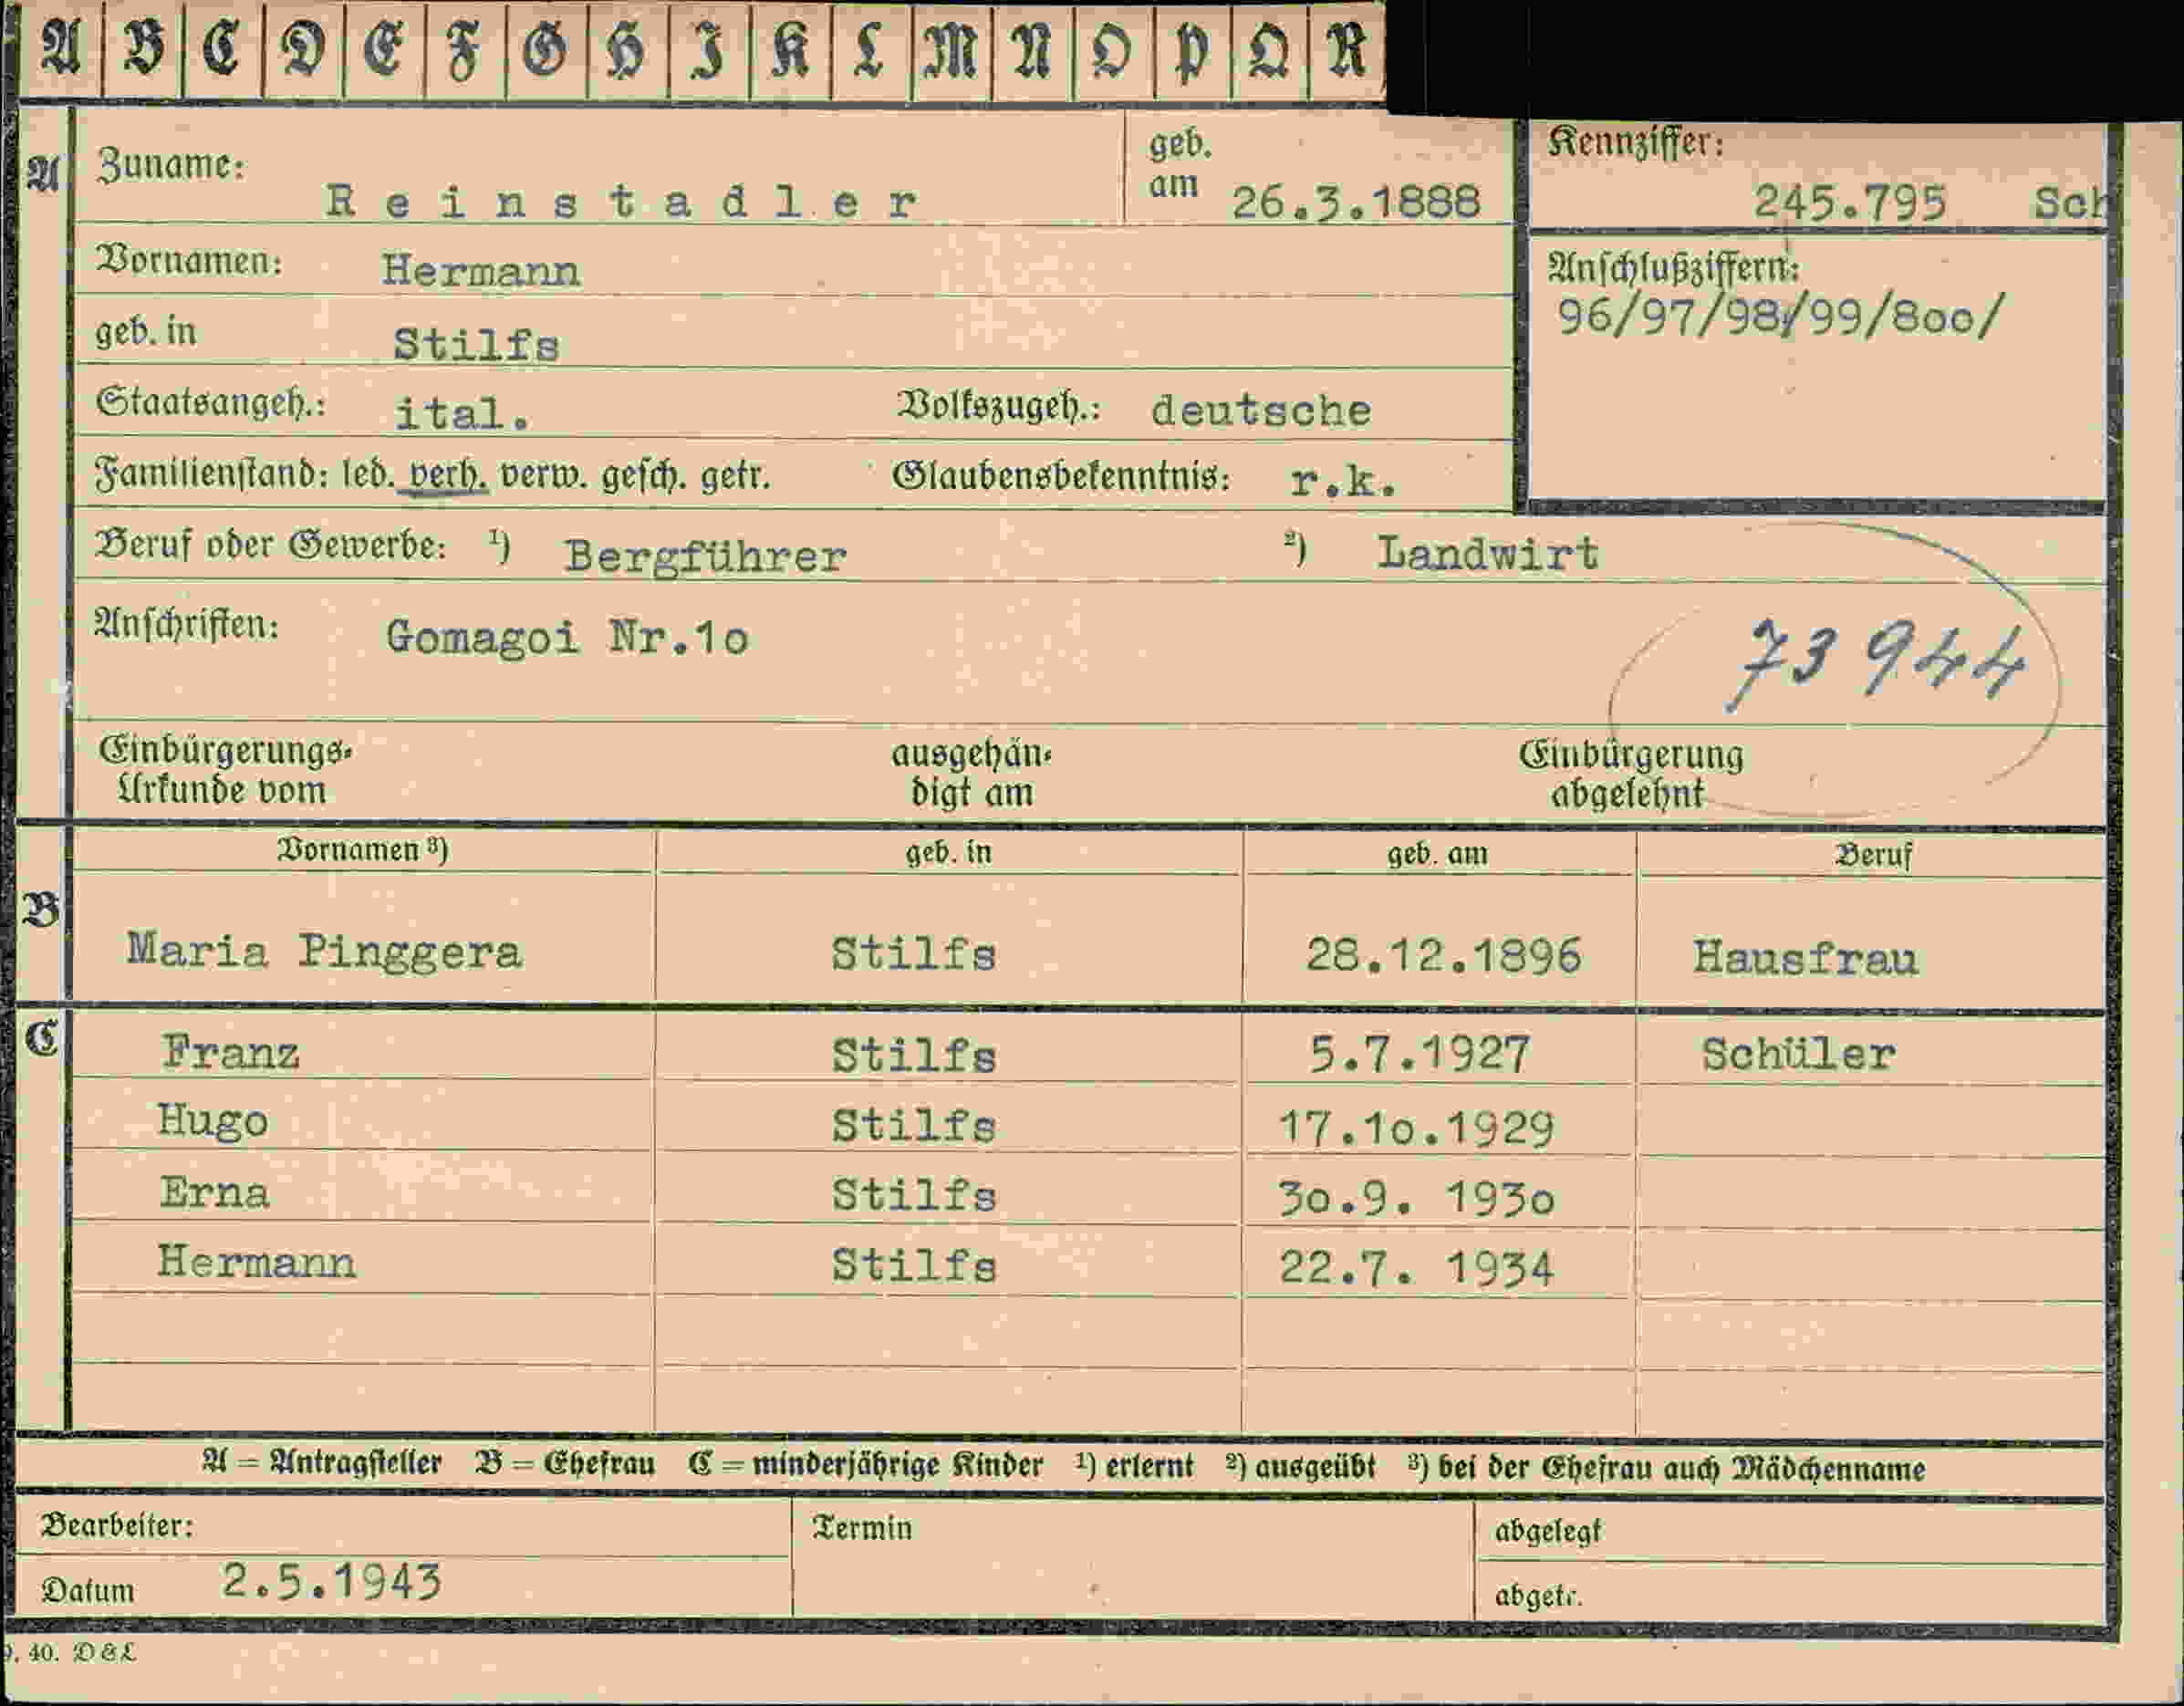 A B C D E F G H I K L M N O P Q R
A Zuname: Reinstadler geb. am 26.3.1888 Kennziffer: 245.795 Sch
Vornamen: Hermann Anschlußziffern:
96/97/98/99/8oo/
geb. in Stilfs
Staatsangeh.: ital. Volkszugeh.: deutsche
Familienstand: led. verh. verw. gesch. getr. Glaubensbekenntnis: r.k.
Beruf oder Gewerbe: ¹) Bergführer ²) Landwirt
Anschriften: Gomagoi Nr.1o 73 944
Einbürgerungs- ausgehän- Einbürgerung
Urkunde vom digt am abgelehnt
Vornamen ³) geb. in geb. am Beruf
B Maria Pinggera Stilfs 28.12.1896 Hausfrau
C Franz Stilfs 5.7.1927 Schüler
Hugo Stilfs 17.1o.1929
Erna Stilfs 3o.9. 193o
Hermann Stilfs 22.7. 1934
A = Antragsteller B = Ehefrau C = minderjährige Kinder ¹) erlernt ²) ausgeübt ³) bei der Ehefrau auch Mädchenname
Bearbeiter: Termin abgelegt
Datum 2.5.1943 abgetr.
. 40. D & L